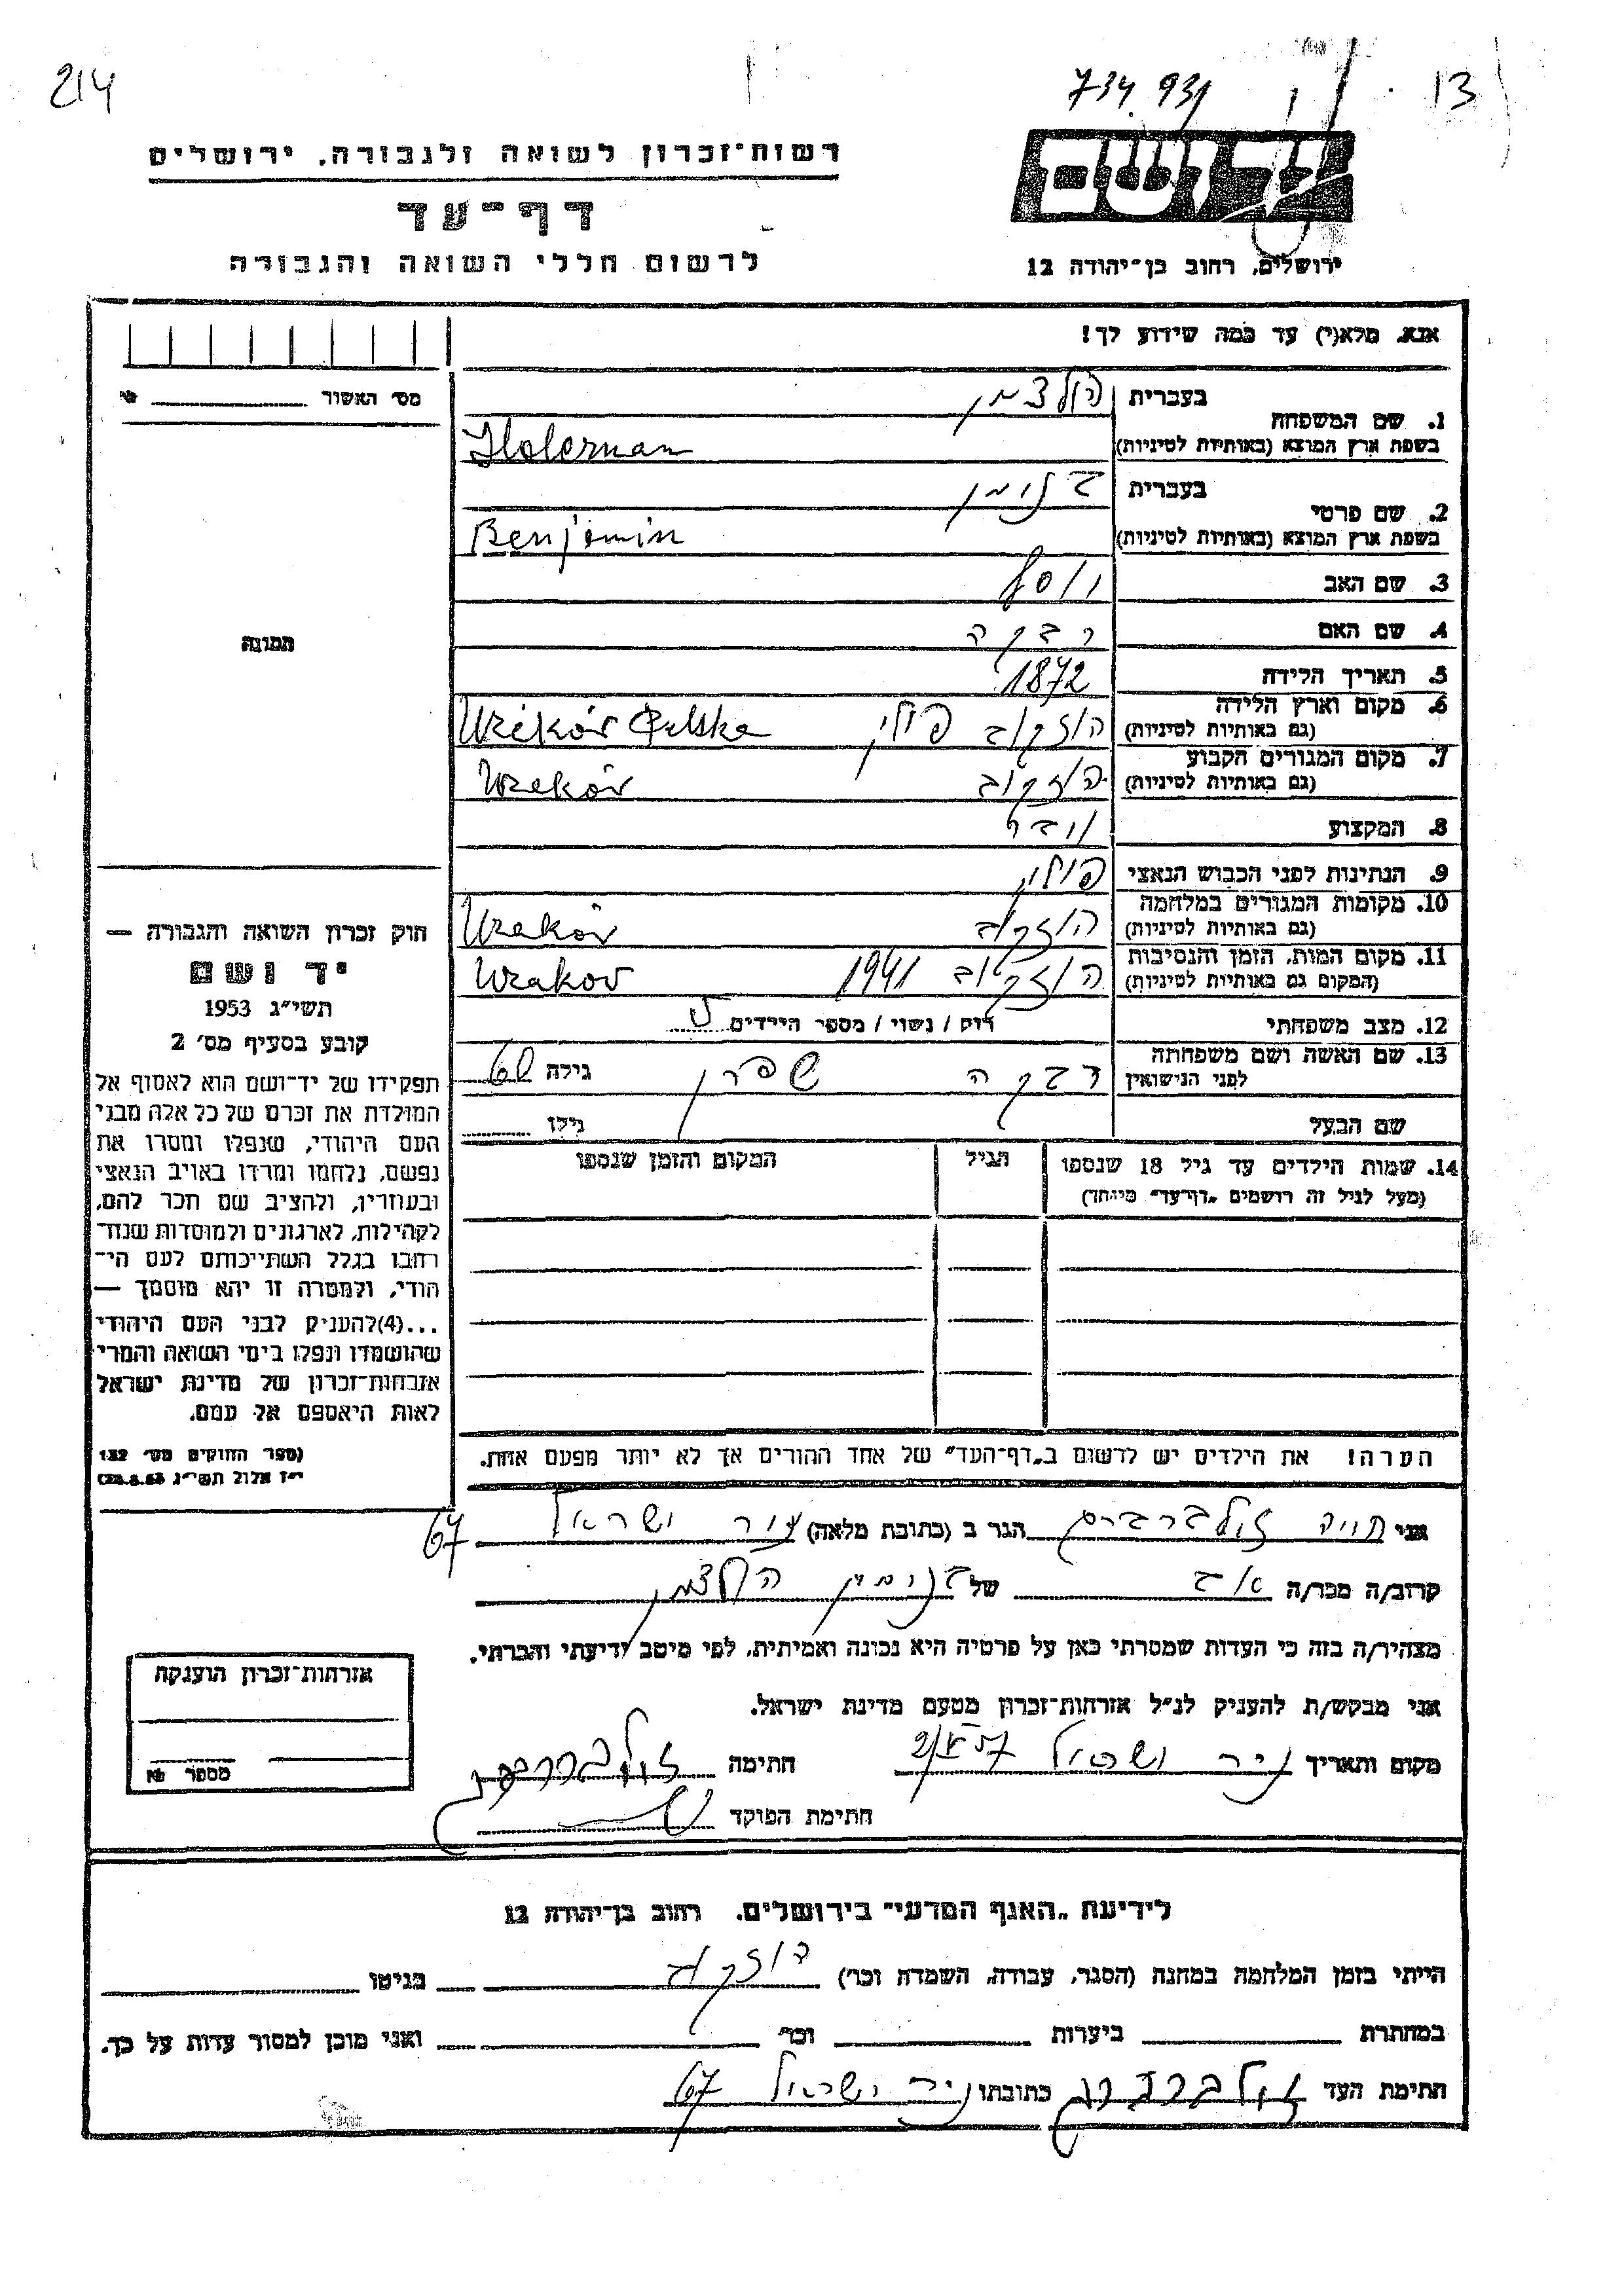 214
734.931
13
רשות־זכרון לשואה ולגבורה, ירושלים
יד ושם
דף־עד
לרשום חללי השואה והגבורה
ירושלים, רחוב בן־יהודה 12
אנא, מלא(י) עד כמה שידוע לך!
מס' האשור
1. שם המשפחה
בעברית הולצמן
בשפת ארץ המוצא (באותיות לטיניות)
2. שם פרטי
בעברית בנימין
בשפת ארץ המוצא (באותיות לטיניות) Benjamin
3. שם האב יוסף
4. שם האם רבקה
5. תאריך הלידה 1872
6. מקום וארץ הלידה פולין
(גם באותיות לטיניות)
7. מקום המגורים הקבוע
(גם באותיות לטיניות)
8. המקצוע
9. הנתינות לפני הכבוש הנאצי פולין
10. מקומות המגורים במלחמה
(גם באותיות לטיניות)
11. מקום המות, הזמן והנסיבות 1941
(המקום גם באותיות לטיניות)
12. מצב משפחתי רוק / נשוי / מספר הילדים
13. שם האשה ושם משפחתה
לפני הנישואין רבקה גילה 60
שם הבעל גילו
14. שמות הילדים עד גיל 18 שנספו הגיל המקום והזמן שנספו
(מעל לגיל זה רושמים „דף־עד" מיוחד)
הערה! את הילדים יש לרשום ב„דף־העד" של אחד ההורים אך לא יותר מפעם אחת.
תמונה
חוק זכרון השואה והגבורה —
יד ושם
תשי״ג 1953
קובע בסעיף מס' 2
תפקידו של יד־ושם הוא לאסוף אל
המולדת את זכרם של כל אלה מבני
העם היהודי, שנפלו ומסרו את
נפשם, נלחמו ומרדו באויב הנאצי
ובעוזריו, ולהציב שם וזכר להם,
לקהילות, לארגונים ולמוסדות שנח־
רבו בגלל השתייכותם לעם הי־
הודי, ולמטרה זו יהא מוסמך —
...(4)להעניק לבני העם היהודי
שהושמדו ונפלו בימי השואה והמרי
אזרחות־זכרון של מדינת ישראל
לאות היאספם אל עמם.
(ספר החוקים מס' 132
י״ז אלול תשי״ג 28.8.53)
אני חיה הגר ב (כתובת מלאה) ישראל 67
קרוב/ה מכר/ה אב של בנימין הולצמן
מצהיר/ה בזה כי העדות שמסרתי כאן על פרטיה היא נכונה ואמיתית, לפי מיטב ידיעתי והכרתי.
אני מבקש/ת להעניק לנ״ל אזרחות־זכרון מטעם מדינת ישראל.
מקום ותאריך ניר ישראל חתימה
חתימת הפוקד
אזרחות־זכרון הוענקה
מספר №
לידיעת „האגף המדעי" בירושלים, רחוב בן־יהודה 12
הייתי בזמן המלחמה במחנה (הסגר, עבודה, השמדה וכו') בגיטו
במחתרת ביערות וכו' ואני מוכן למסור עדות על כך.
חתימת העד כתובתו ניר ישראל 67